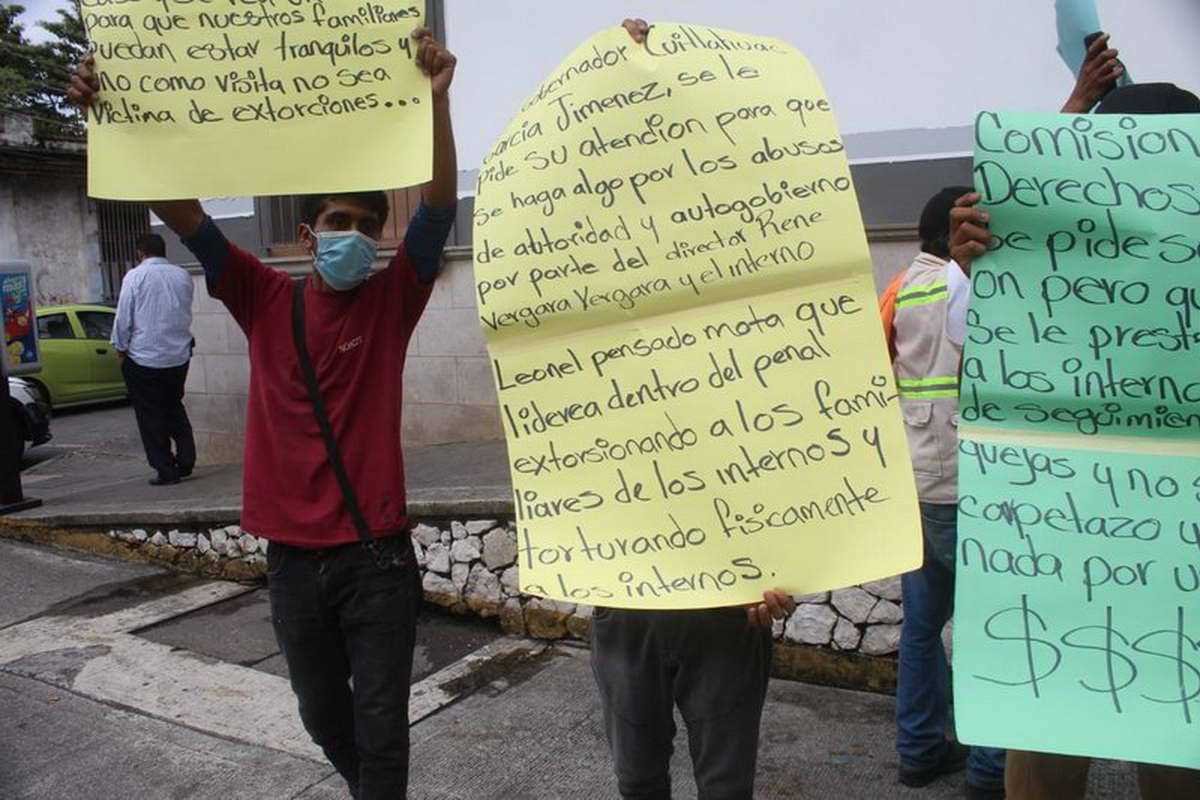 para que nuestros familiares
puedan estar tranquilos y
no como visita no sea
victima de extorciones...
Gobernador Cuitlahuac
Garcia Jimenez, se le
pide su atencion para que
se haga algo por los abusos
de abtoridad y autogobierno
por parte del director Rene
Vergara Vergara y el interno
Leonel pensado mota que
liderea dentro del penal
extorsionando a los fami-
liares de los internos y
torturando fisicamente
a los internos.
Comision
Derechos
Se pide s
on pero q
Se le prest
a los intern
de seguimien
quejas y no
carpetazo y
nada por u
$$$